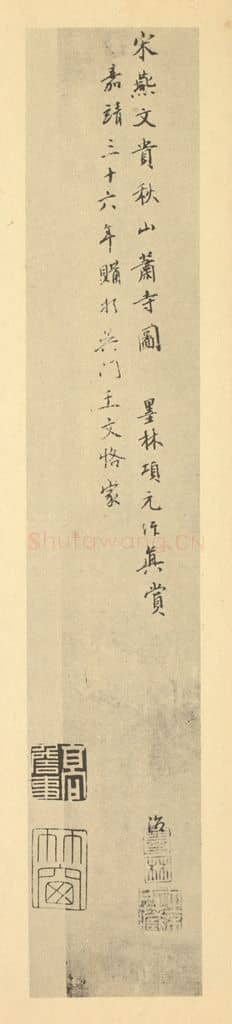 宋燕文貴秋山蕭寺圖　墨林項元汴真賞
嘉靖三十六年購於吳門王文恪家
Shufawang.CN